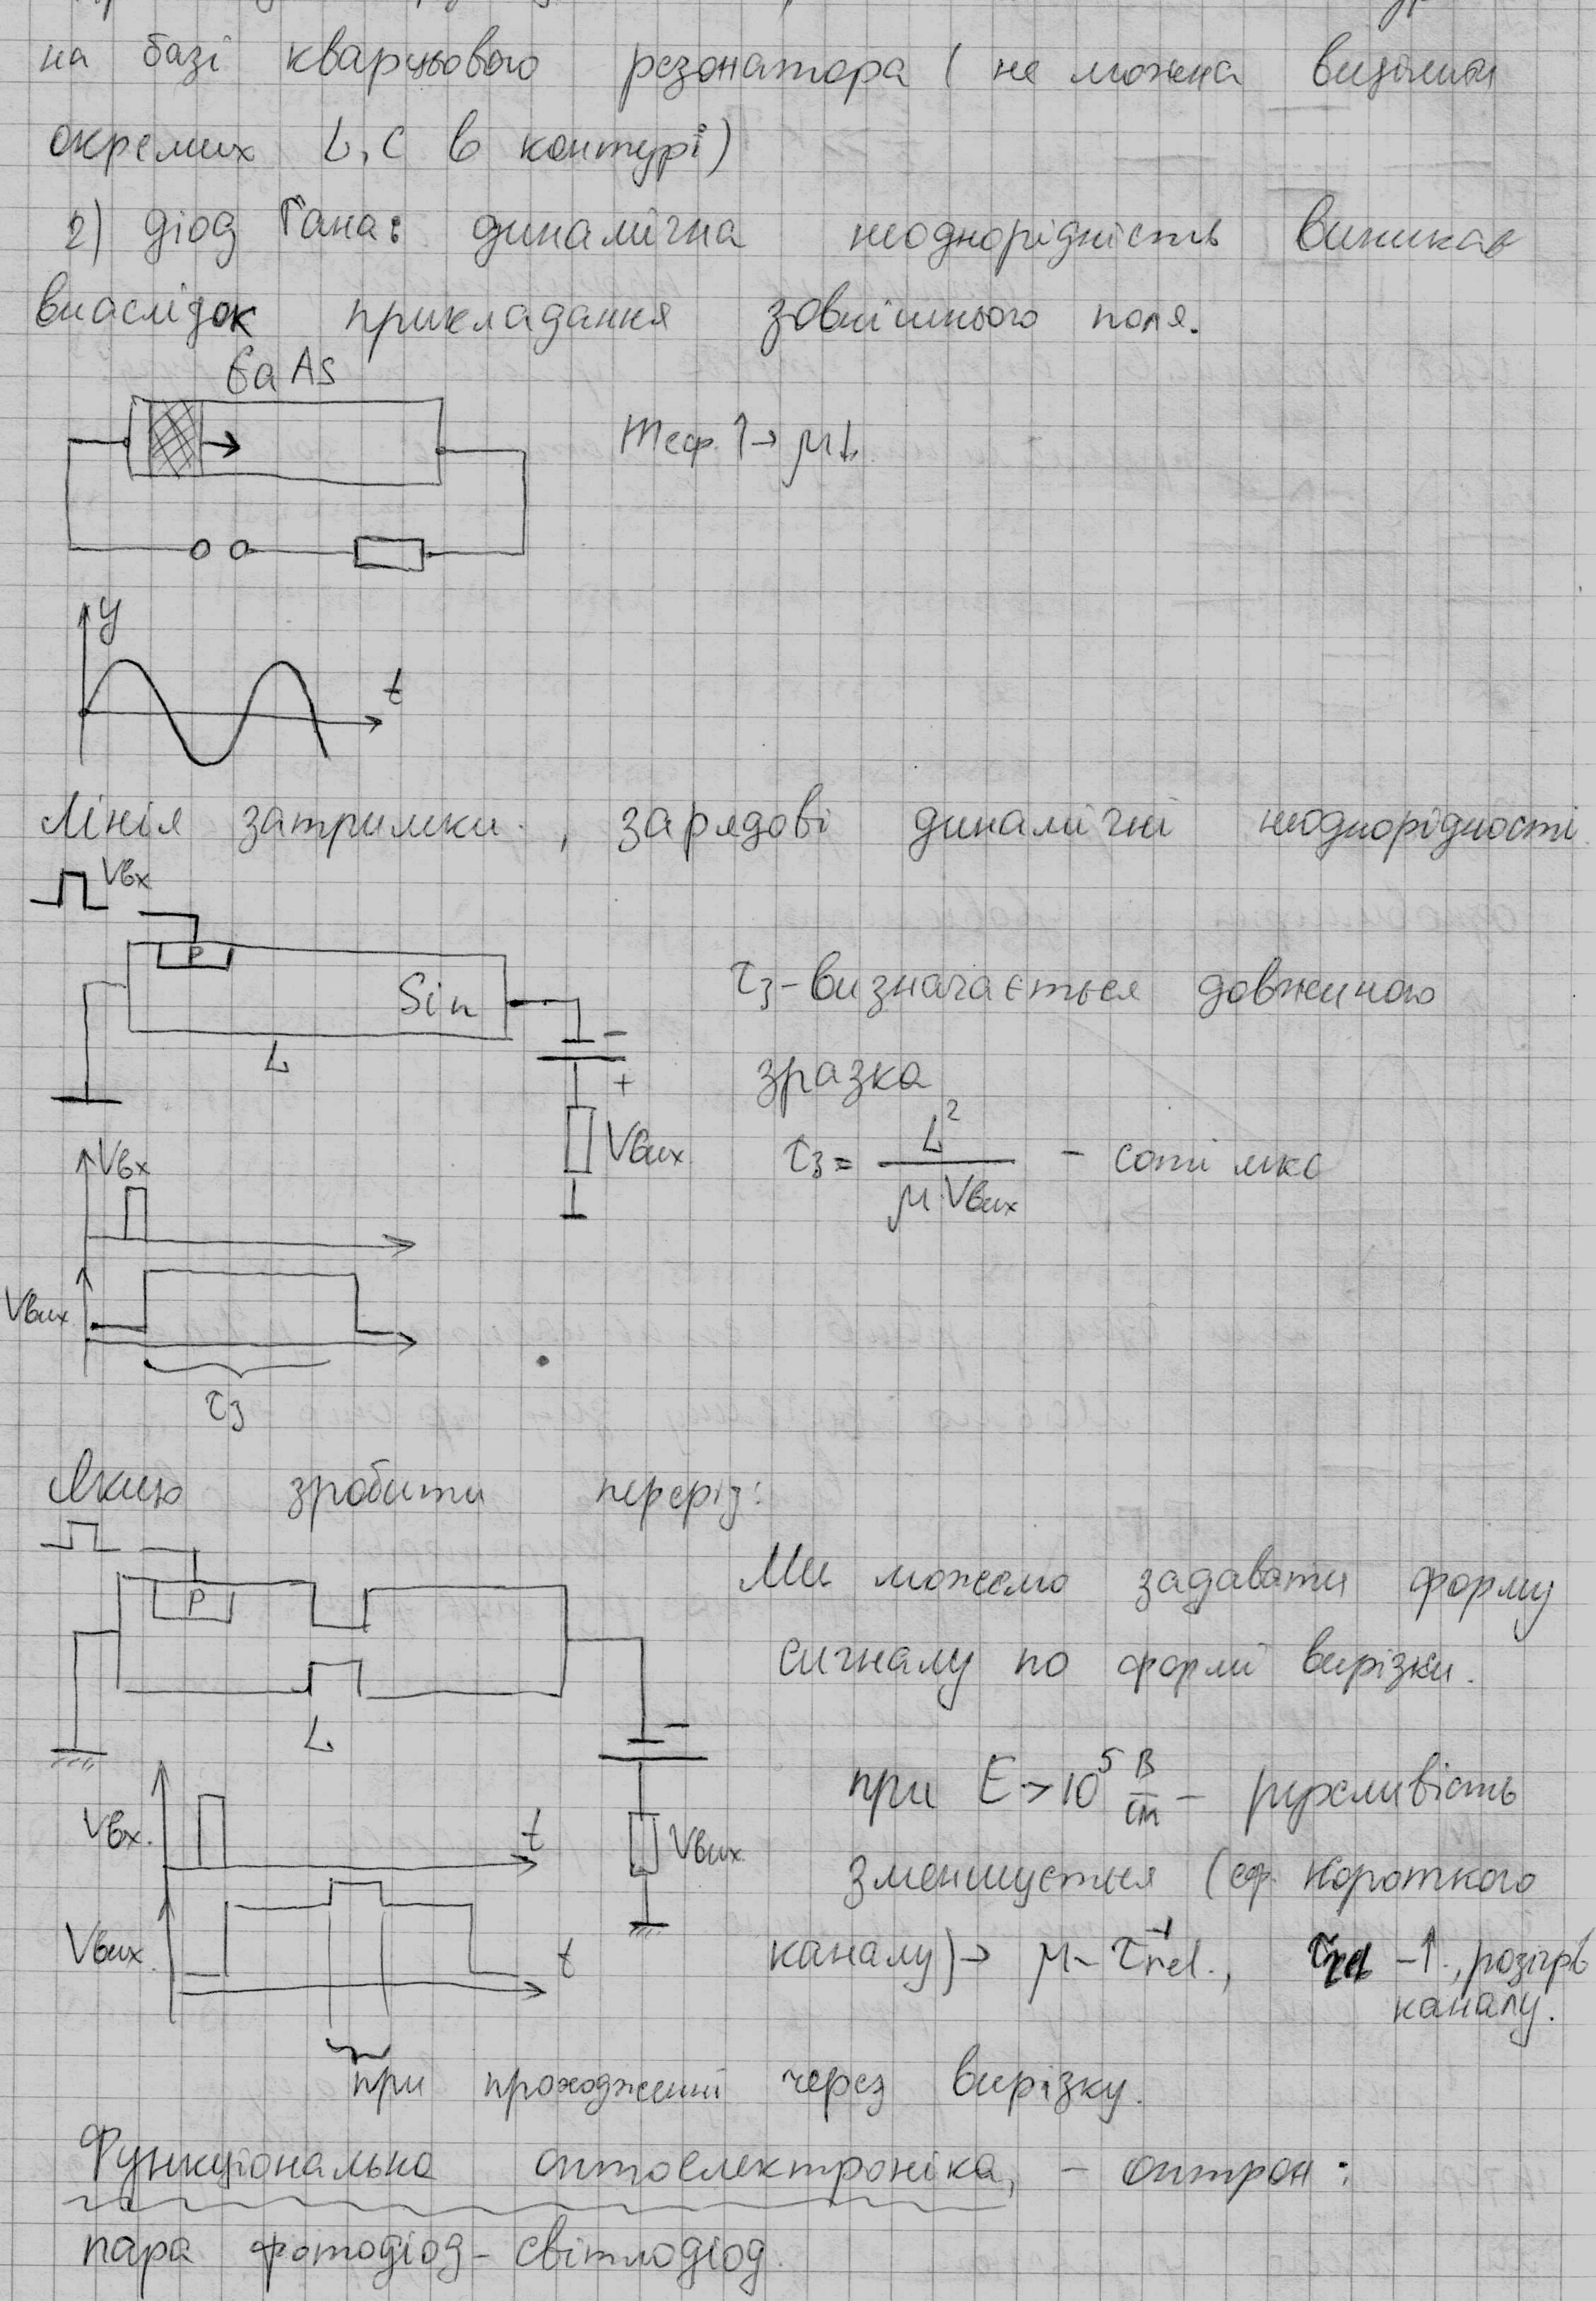 на базі кварцьового резонатора ( не можна виділити
окремих L, C в контурі)
2) діод Ґана: динамічна неоднорідність виникає
внаслідок прикладання зовнішнього поля.
GaAs
mеф. ↑ → μ↓
y
t
Лінія затримки, зарядові динамічні неоднорідності.
Vвх
P
Si n
L
τз - визначається довжиною
зразка
−
+
Vвих
τз = L² / μ·Vвих − сотні мкс
Vвх
Vвих
τз
Якщо зробити переріз:
P
L
Ми можемо задавати форму
сигналу по формі вирізки.
−
при E > 10⁵ В/см − рухливість
зменшується (еф. короткого
каналу) → μ ~ τ⁻¹rel., τrel − ↑, розігрів
каналу.
Vвх.
t
Vвих.
Vвих.
t
при проходженні через вирізку.
Функціональна оптоелектроніка, − оптрон:
пара фотодіод - світлодіод.